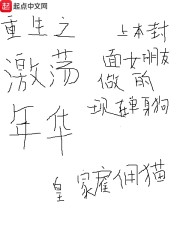 起点中文网
重生之
激荡
年华
上本封
面女朋友
做的
现是单身狗
皇家雇佣猫